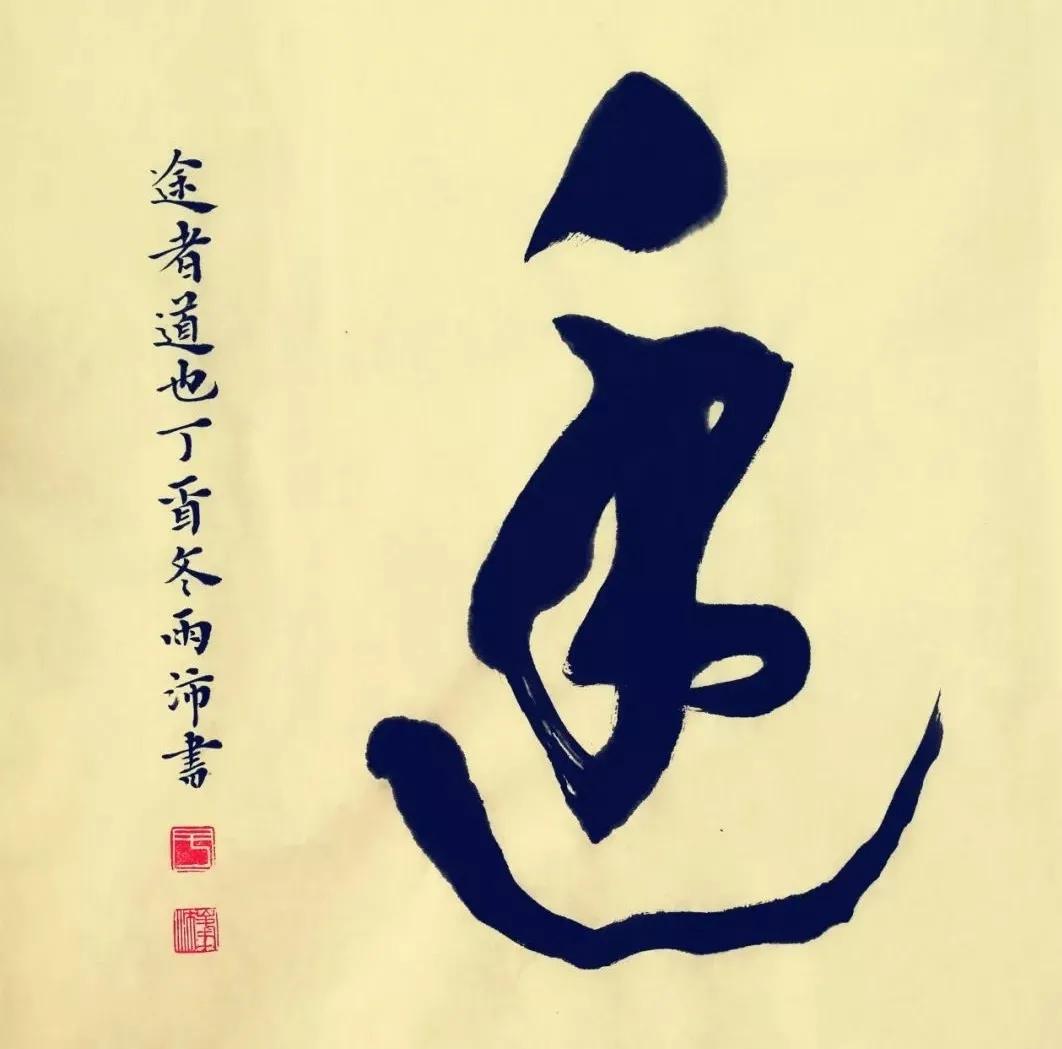 途
途者道也丁酉冬雨沛書